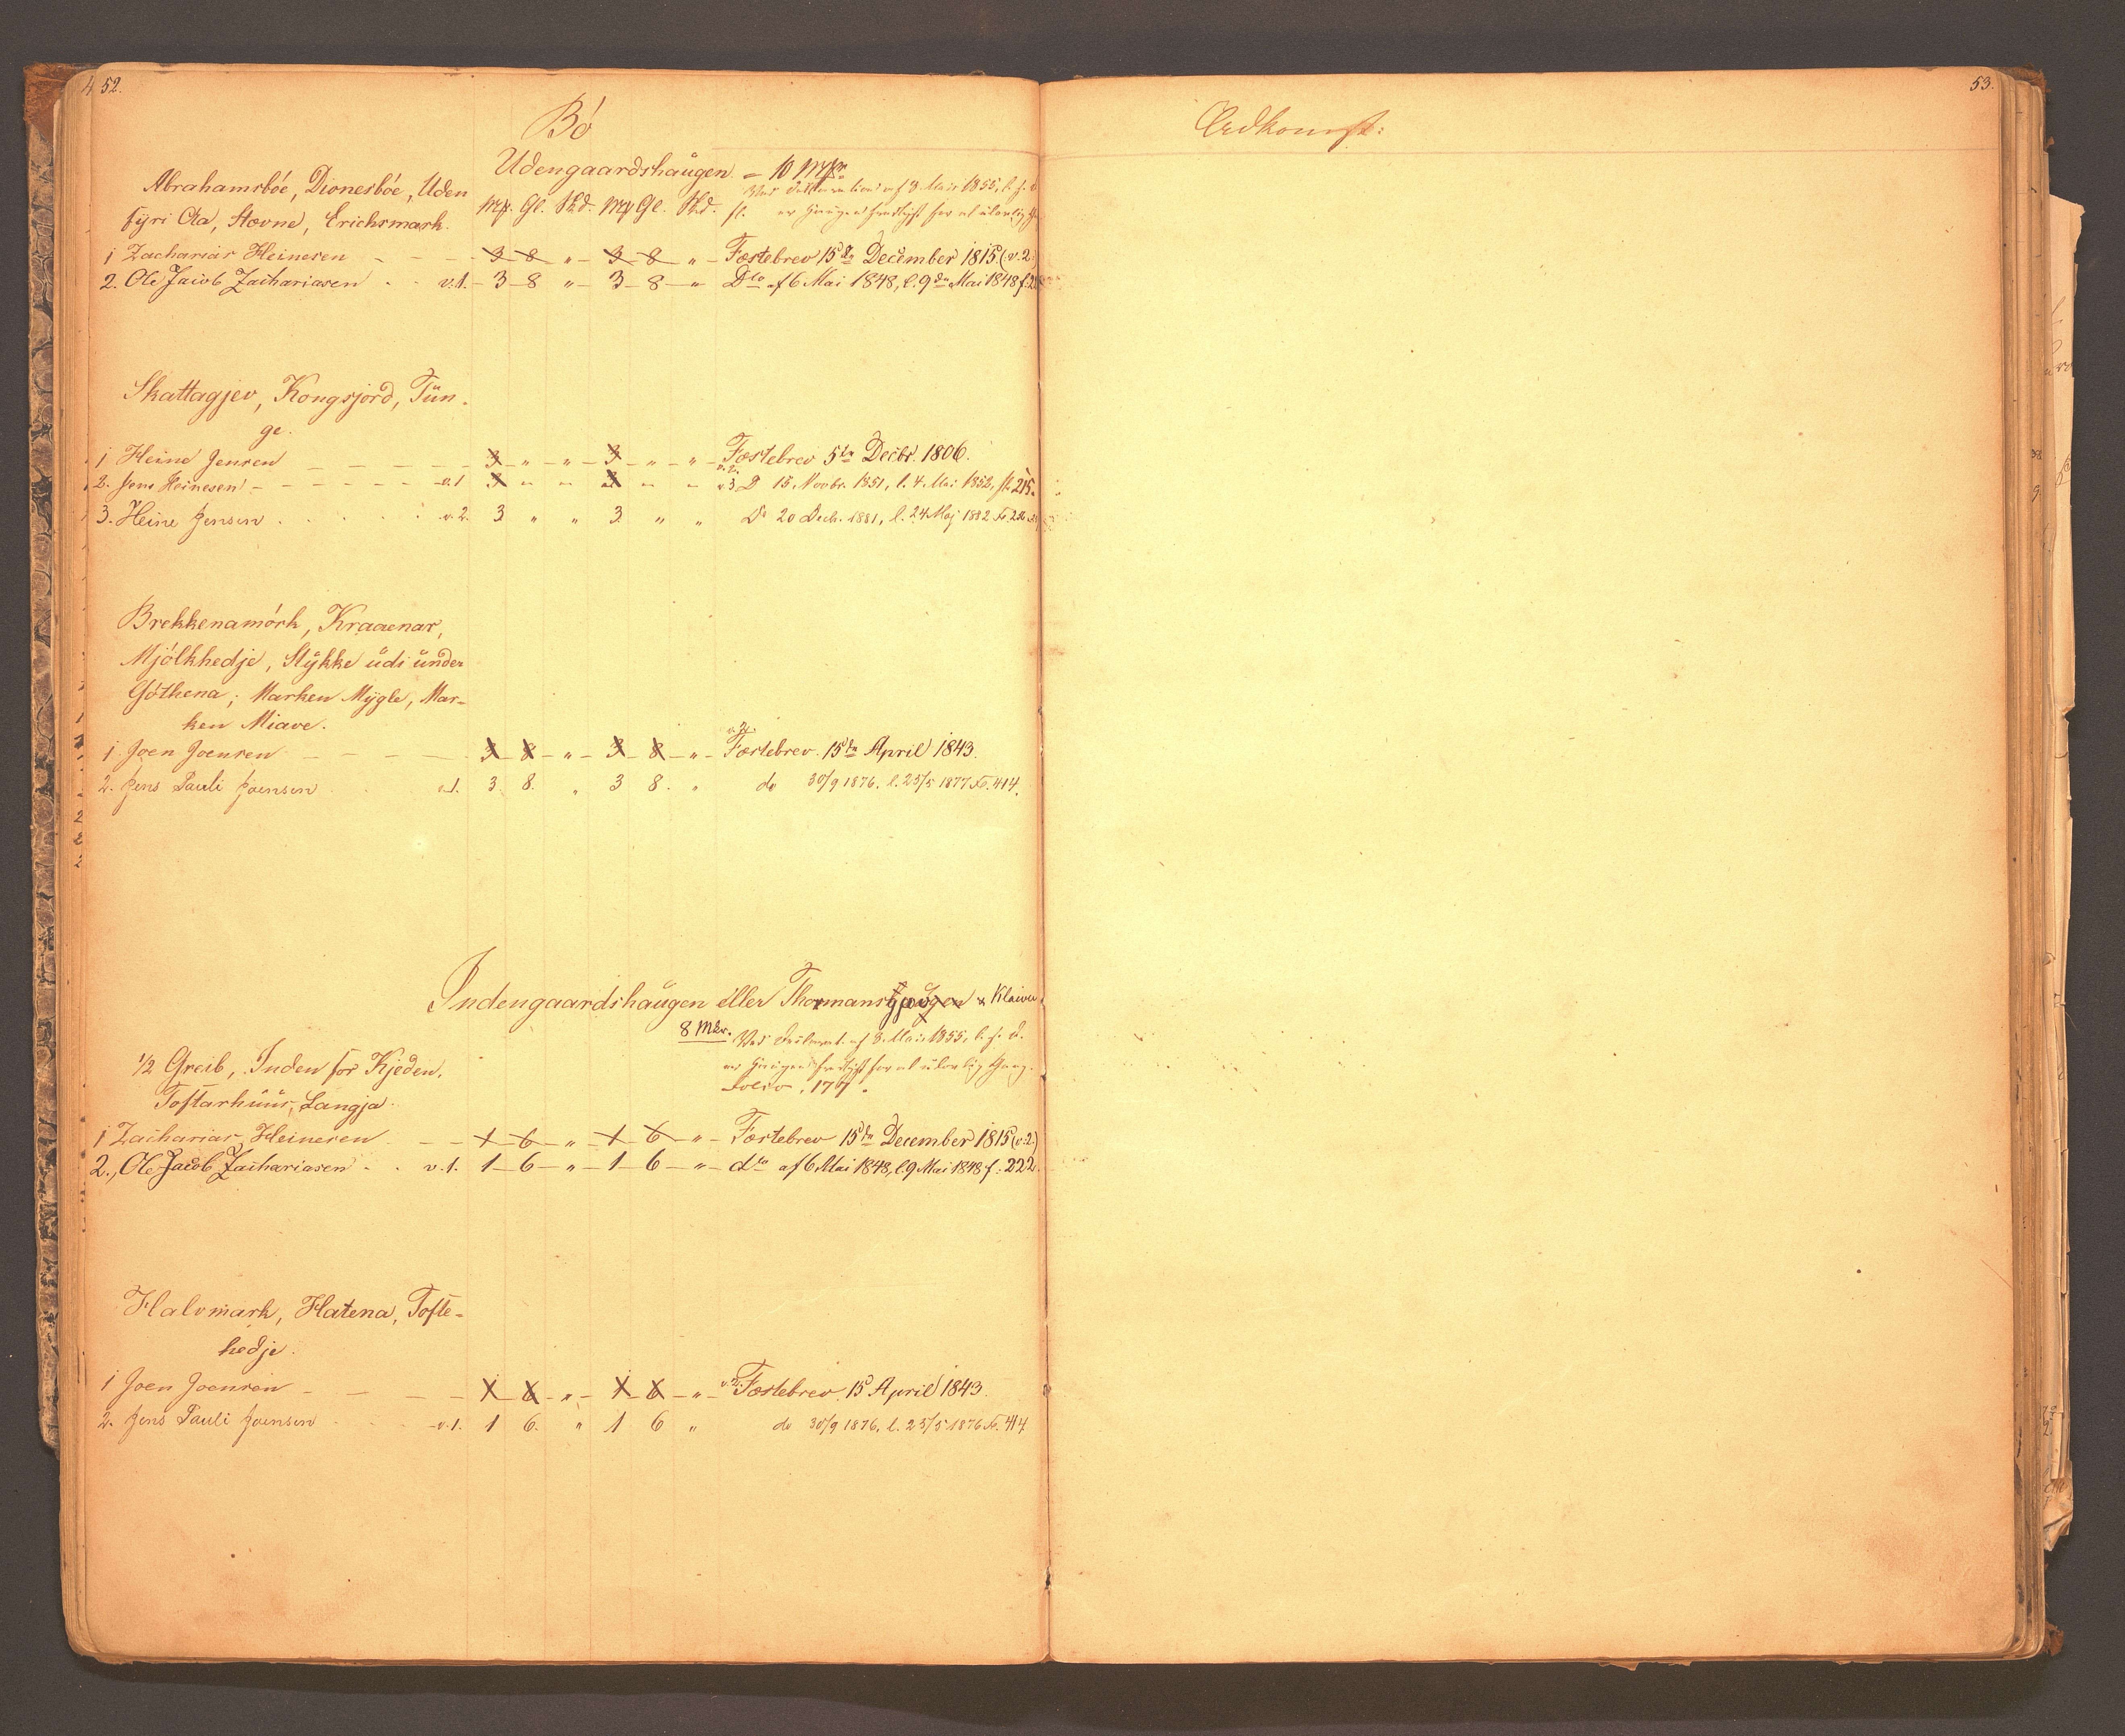 52.
Bó
Udengaardshaugen = 10 Mrk
Abrahamsbóe, Dionesbóe, Uden
Ved Deklaration af 8. Mai 1855, l. s. d.
fyri Aa, Støvne, Erichsmark.
Mk. Gl. Skd. Mk Gl. Skd.
fl. er Haugen fredlyst for al ulovlig
1 Zacharias Heinesen 3 8 „ 3 8 „ Fæstebrev 15de December 1815 (v.2.)
2. Ole Jacob Zachariasen v.1. 3 8 „ 3 8 „ Dto af 6 Mai 1848, l. 9de Mai 1848 f.
Skattagjev, Kongsjord, Tün-
ge.
1 Heine Jensen 3 „ „ 3 „ „ Fæstebrev 5te Decbr. 1806.
v.2.
2. Jens Heinesen v.1 3 „ „ 3 „ „ v.3. D 15. Novbr. 1851, l. 4. Mai 1852, fl. 215.
3. Heine Jensen v.2. 3 „ „ 3 „ „ Do 20 Decb. 1881, l. 24 Maj 1882 Fo. 226
Brekkenamórk, Kraaenar,
Mjólkhedje, Stÿkke üdi ünder
Góthena; Marken Mÿgle, Mar-
ken Miave.
v.2.
1 Joen Joensen 3 8 „ 3 8 „ Fæstebrev 15de April 1843.
2. Jens Pauli Joensen v.1. 3 8. „ 3 8. „ do 30/9 1876. l. 25/5 1877 Fo. 414.
Indengaardshaugen eller Thormans Klaivu
8 Mkr. Ved Deklarat. af 8. Mai 1855, l. s. d.
er Haugen fredlyst for al ulovlig Gang.
Folio, 177.
1/2 Greib, Inden for Kjeden,
Toftarhüüs, Langja.
1 Zacharias Heinesen 1 6 „ 1 6 „ Fæstebrev 15de December 1815 (v.2.)
2., Ole Jacob Zachariasen v.1. 1 6 „ 1 6 „ dto af 6 Mai 1848, l. 9 Mai 1848 f: 222.
Halvmark, Flatena, Tofte-
hedje.
1 Joen Joensen 1 6 „ 1 6 „ v.2. Fæstebrev 15 April 1843.
2. Jens Pauli Joensen v.1. 1 6. „ 1 6 „ do 30/9 1876, l. 25/5 1876 Fo. 414
53.
Adkomst: